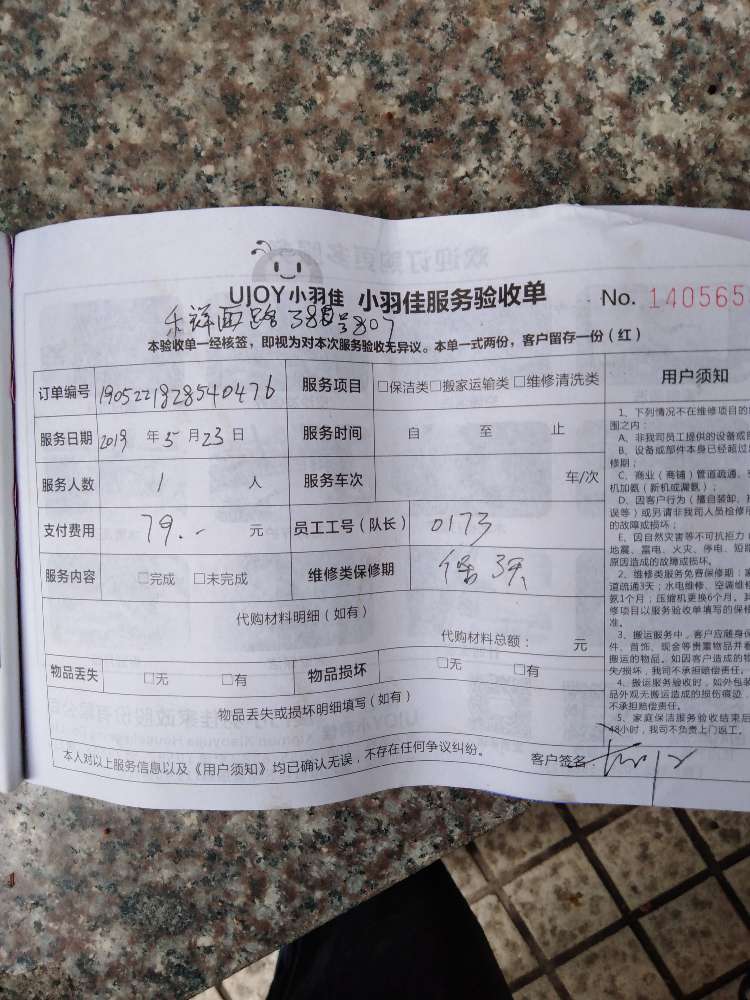 UJOY小羽佳 小羽佳服务验收单 No. 140565
西路388号807
本验收单一经核签，即视为对本次服务验收无异议。本单一式两份，客户留存一份（红）
订单编号 1905221828540476 服务项目 □保洁类□搬家运输类□维修清洗类
服务日期 2019 年 5 月 23 日 服务时间 自 至 止
服务人数 1 人 服务车次 车/次
支付费用 79.- 元 员工工号（队长） 0173
服务内容 □完成 □未完成 维修类保修期 保3天
代购材料明细（如有）
代购材料总额： 元
物品丢失 □无 □有 物品损坏 □无 □有
物品丢失或损坏明细填写（如有）
本人对以上服务信息以及《用户须知》均已确认无误，不存在任何争议纠纷。 客户签名：
用户须知
1、下列情况不在维修项目的
围之内：
A、非我司员工提供的设备或
B、设备或部件本身已经超过
修期；
C、商业（商铺）管道疏通、
机加氨（新机或漏氨）；
D、因客户行为（擅自装卸、
误等）或另请非我司人员检修
的故障或损坏；
E、因自然灾害等不可抗拒力（
地震、雷电、火灾、停电、短
原因造成的故障或损坏。
2、维修类服务免费保修期：
道疏通3天；水电维修、空调维
氨1个月；压缩机更换6个月。
修项目以服务验收单填写的保
准。
3、搬运服务中，客户应随身
件、首饰、现金等贵重物品并
搬运的物品。如因客户造成的
失/损坏，我司不承担赔偿责任。
4、搬运服务验收时，如外包装
品外观无搬运造成的损伤痕迹
不承担赔偿责任。
5、家庭保洁服务验收结束后
48小时，我司不负责上门返工。